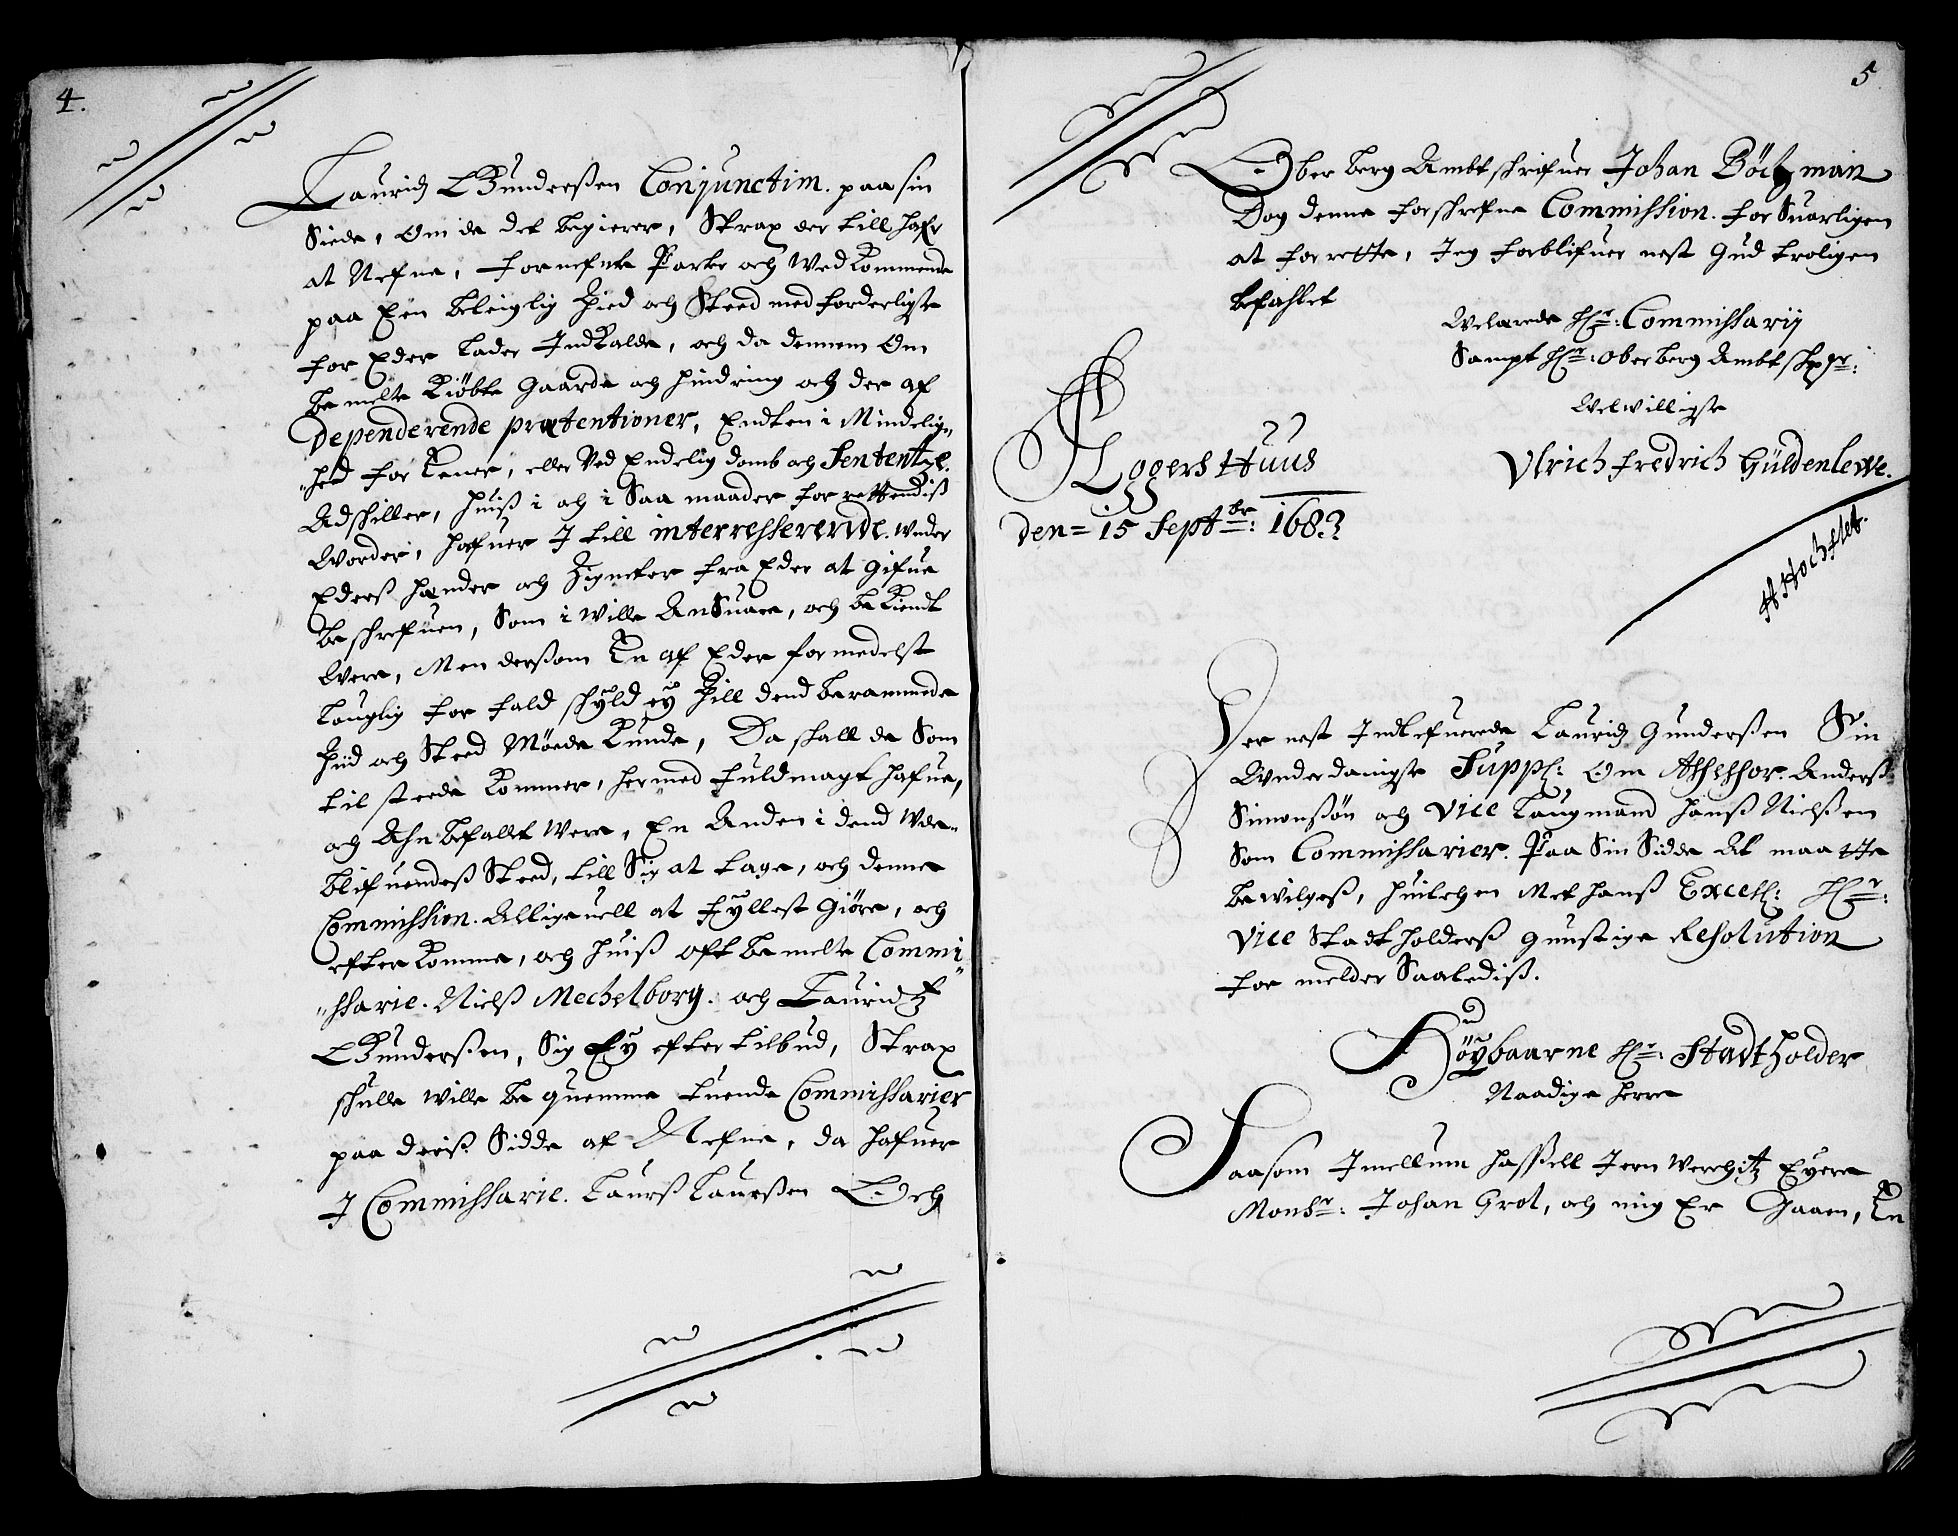 4.
Lauridz Gunderßen Conjunctim. paa sin
Siede, Om de det begierer, Strax der till hafr
at Nefne, fornefnte Parter och Wed Kommende
paa Een beleiglig Tied och Steed med forderligste
for Eder lader Indkalde, och da dennem Om
be melte Kiøbte Gaarde och hindring och der af
dependerende prætentioner, Endten i Mindelig„
„hed for Eener, eller Ved Endelig domb och Sententze.
Adskiller, huiß i och i Saa maader for rettendiß
Worder, hafuer I till interresserende. Under
Eders hænder och Zigneter fra Eder at gifue
beskrefuen, Som i wille AnSuare, och bekiendt
Were, Men dersom En af Eder formedelst
lauglig for fald skyld ey Till dend berammede
Tiid och Steed Møede Kunde, Da skall de Som
til stede Kommer, hermed fuldmagt hafue,
och Ahnbefallt Were, En Anden i dend Wde„
blifuendeß Steed, till Sig at tage, och denne
Commission. Alligeuell at fyllest Giøre, och
efter Komme, och huiß oft be melte Commi„
„ssarie. Nielß Mechelborg. och Lauridtz
Gunderßen, Sig Ey efter tilbud, Strax
skulle wille be quemme tuende Commissarier
paa deriß Sidde af Nefne, da hafuer
I Commissarie. Laurß Laurßen Och
5
Ober berg Ambt skrifuer Johan Bötzman
Dog denne forskrefne Commission. for Suarligen
at for rette, Jeg forblifuer nest Gud troligen
befahlet
Welærede Hr: Commissarij
Sampt Hr: Ober berg Ambt skr:
Welwilligste
Aggers Huus
Ulrich Fredrich Güldenlewe.
den = 15 Septbr: 1683
H Hochstet.
Der nest Indlefuerede Lauridz Gunderßen Sin
Underdanigste Suppl: Om Assessor. Anderß
Simonßøn och Vice Laugmand Hanß Nielßen
Som Commissarier. Paa Sin Sidde At maatte
bewilgeß, huilchen Met Hanß Excell: Hr:
Vice Stadtholderß gunstige Resolution
for melder Saalediß.
Höybaarne Hr: Stadtholder
Naadige Herre
Saasom Imellum Haßell Jern Werchitz Eyere
Monsr: Johan Grot, och mig Er Gaaen, En